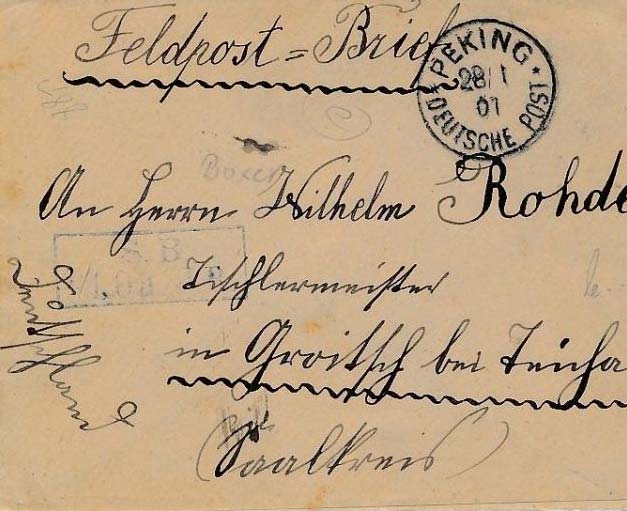 Feldpost = Brief
PEKING
28/1
01
DEUTSCHE POST
Boxer
An Herrn Wilhelm Rohde
S. B.
Tischlermeister
in Groitsch bei Teicha
(Saalkreis)
Deutschland